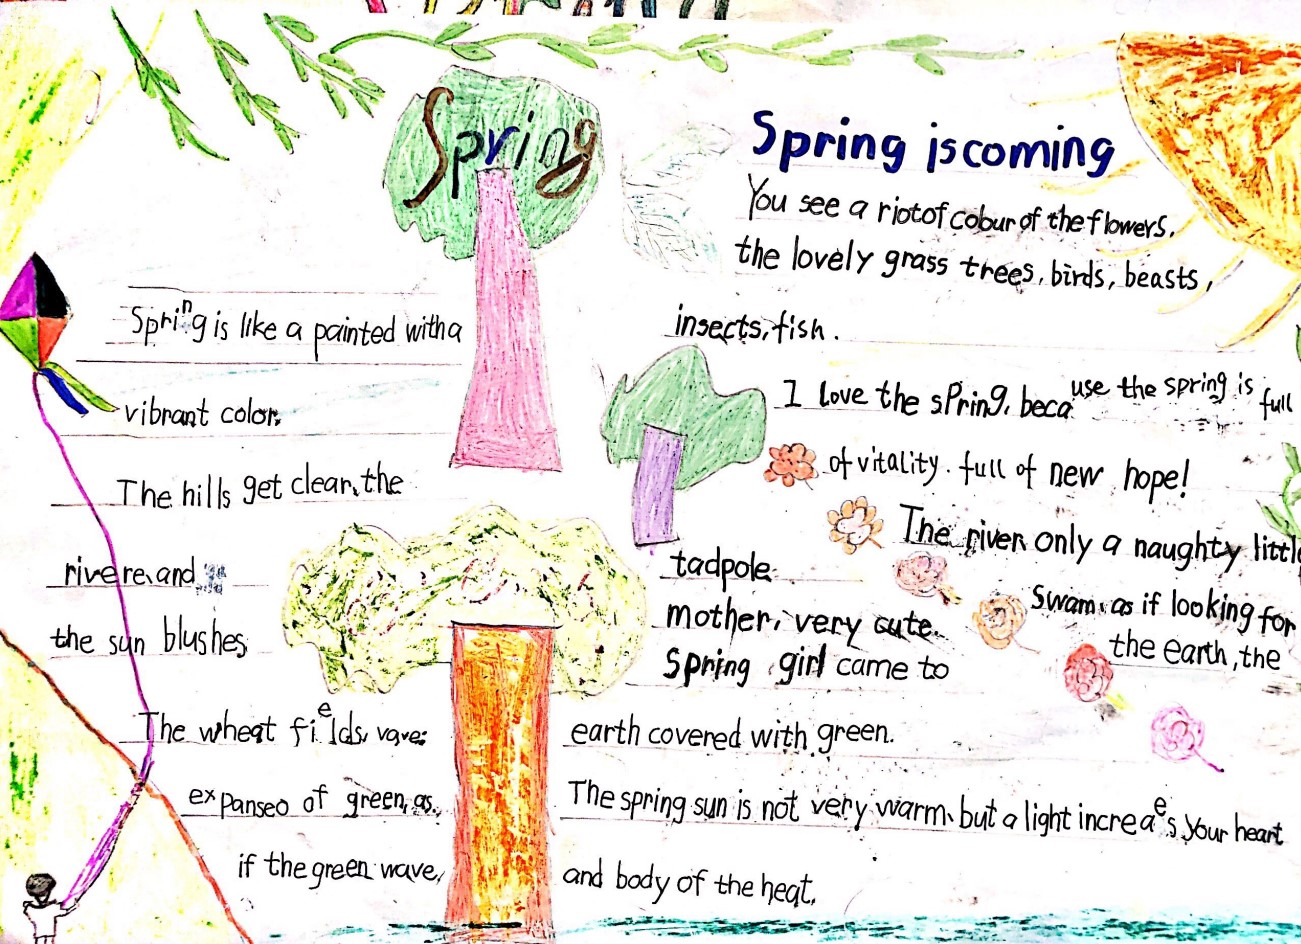 Spring
Spring is like a painted with a
vibrant color.
The hills get clear, the
rivere re, and
the sun blushes,
The wheat fields, wave:
expanseo of green, as.
if the green wave,
Spring is coming
You see a riot of colour of the flowers,
the lovely grass trees, birds, beasts,
insects, fish.
I love the sPring, because the spring is full
of vitality. full of new hope!
The river, only a naughty little
tadpole Swam, as if looking for
mother, very cute. the earth, the
Spring girl came to
earth covered with green.
The spring sun is not very warm, but a light increaes your heart
and body of the heat,